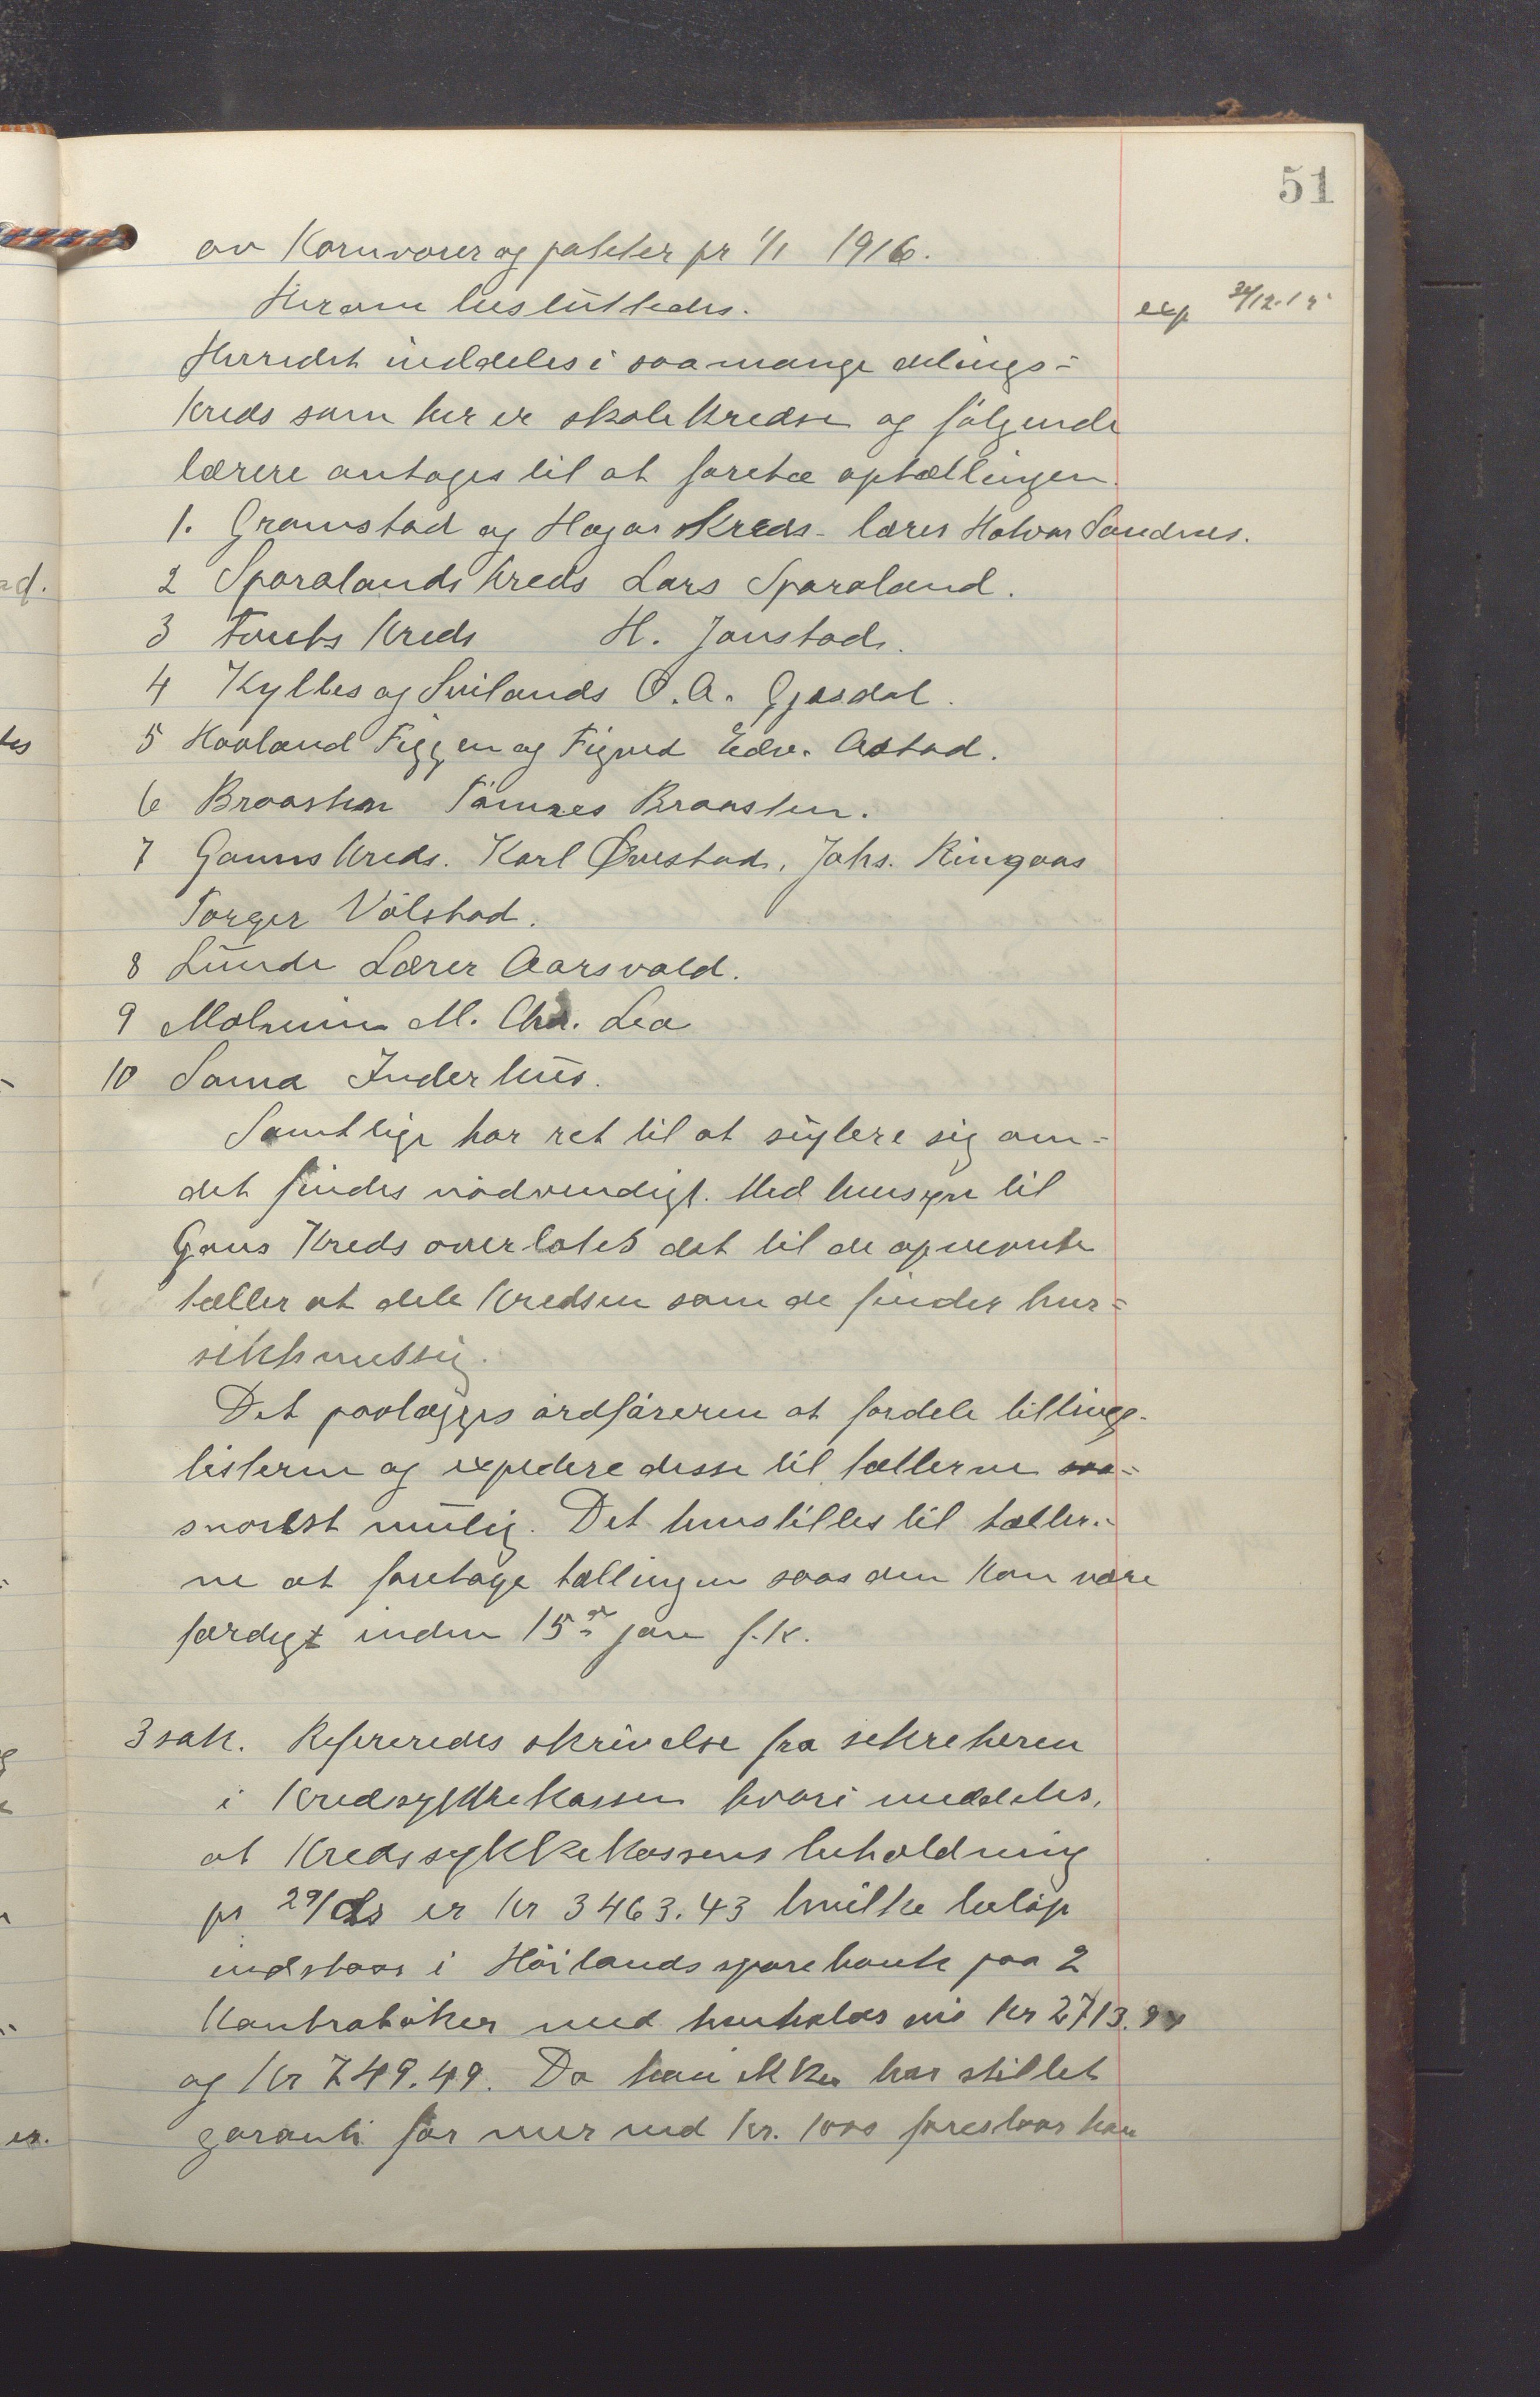 51
av Kornvarer og poteter pr 1/1 1916.
Herom beslúttedes.
exp 31/12-15
Herredet inddeles i saamange delings=
kreds som her er skolekredse og følgende
lærere antages til at foreta optællingen.
1. Gramstad og Hogas Kreds - lærer Halvor Sandnes.
2 Sporalands kreds Lars Sporaland.
3 Kreds H. Jonstad.
4 Kylles og Svilands O. A. Gjesdal.
5 Hooland Figgen og Edv. Aastad.
6 Braasten Tönnes Braasten.
7 Ganns Kreds. Karl Øvestad, Johs. Ringaas
Torger Völstad.
8 Lúnde Lærer Aarsvold.
9 Malmein M. Chr. Lea
10 Soma Inderhús.
Samtlige har ret til at súplere sig om=
det findes nödvendigt. Med hensyn til
Gans Kreds overlates det til de opnevnte
tæller at dele Kredsen som de finder hen=
siktsmessig.
Det paalægges ordföreren at fordele tællings-
listerne og expedere disse til tællerne saa=
snarest múlig. Det henstilles til tæller=
ne at foretage tællingen saa den kan være
færdigt inden 15de jan f.k.
3 sak. Refereredes skrivelse fra sekreteren
i Kredssykkekassen hvori meddeles,
at Kredssykkekassens beholdning
pr 29/ds er Kr 3463.43 hvilke belöp
indstaar i Höilands sparebank paa 2
Kontraböker med henholdsvis Kr 2713.94
og Kr 749.49. Da han ikke har stillet
garanti for mer end Kr. 1000 foreslaar han